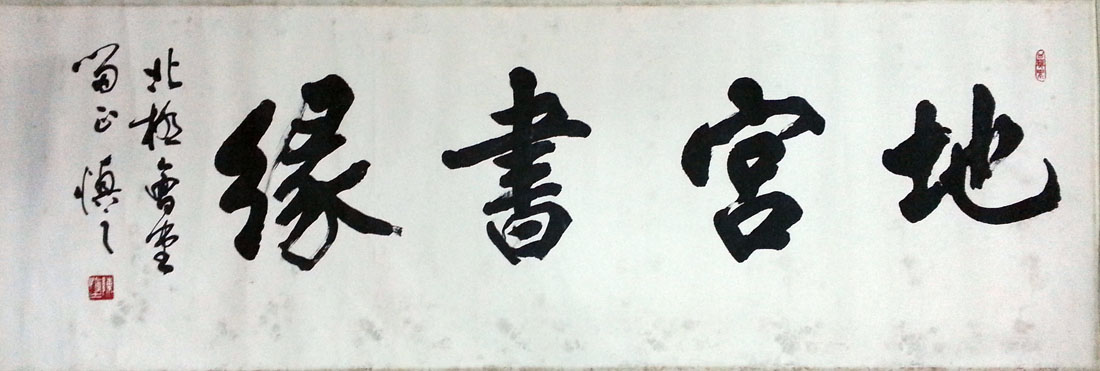 地宮書緣
北極會堂
留正 慎之